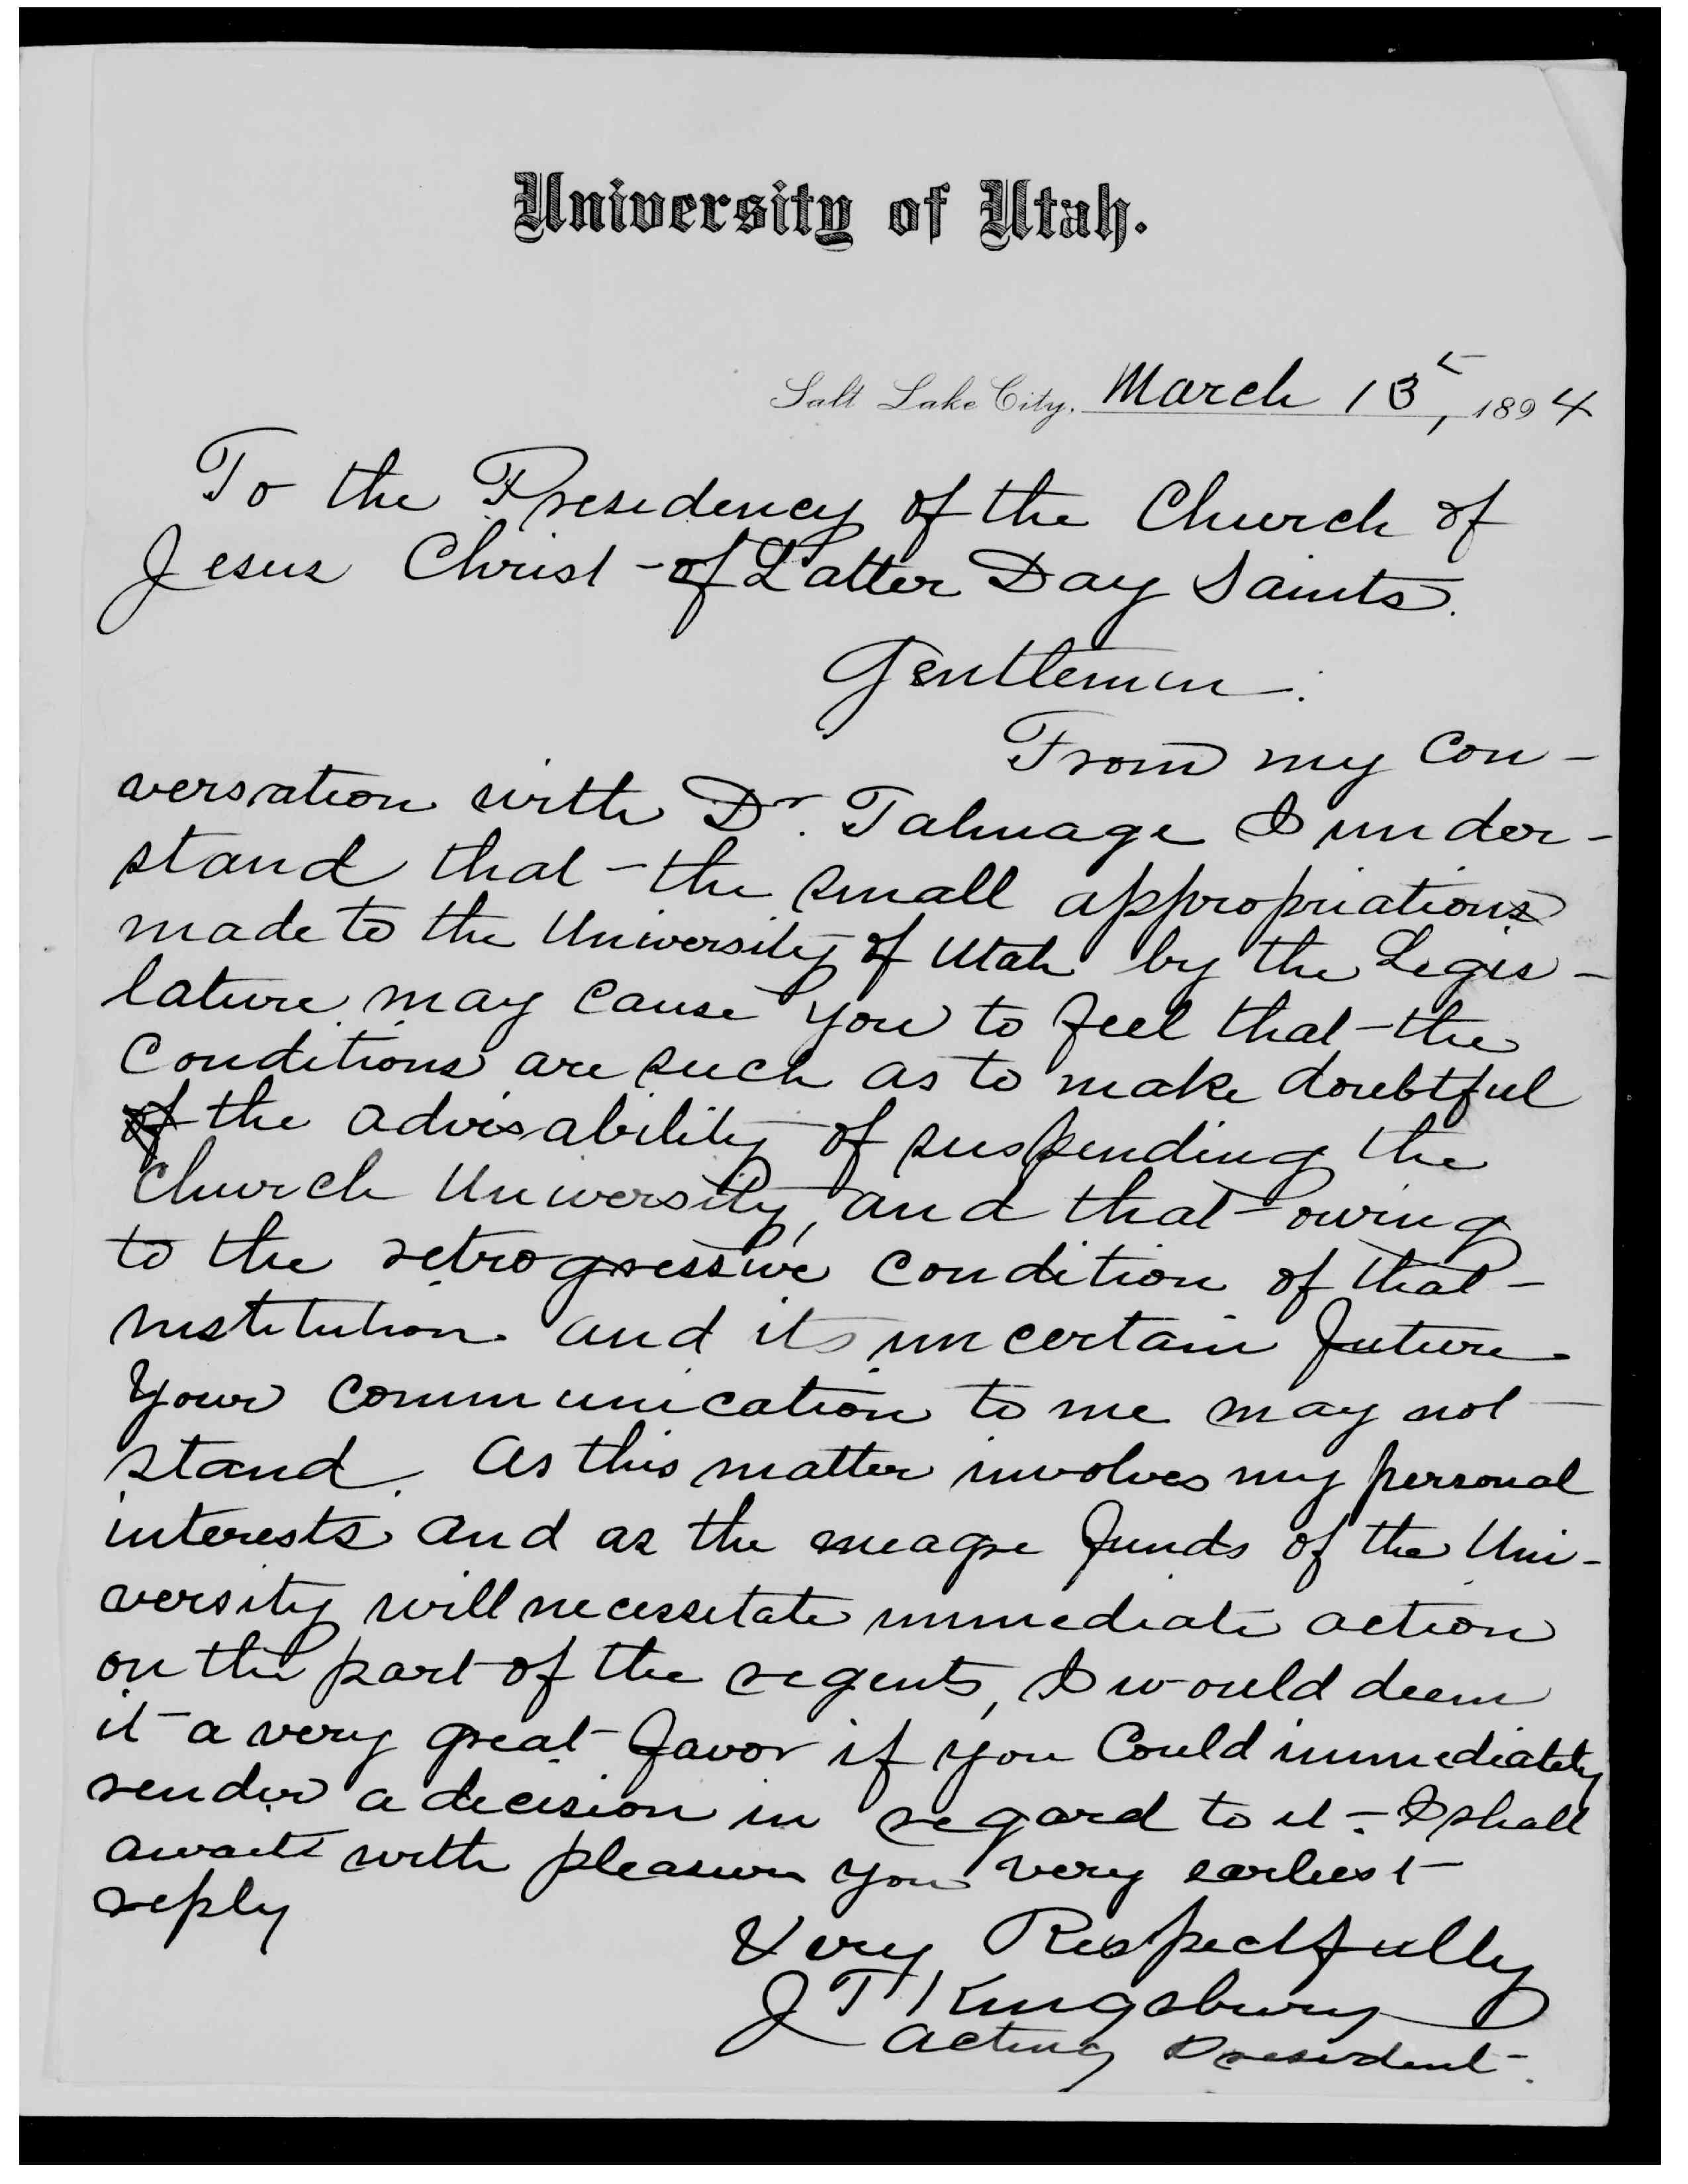 University of Utah.
Salt Lake City, March 13, 1894
To the Presidency of the Church of
Jesus Christ of Latter Day Saints.
Gentlemen:
From my con-
versation with Dr. Talmage I under-
stand that the small appropriations
made to the University of Utah by the Legis-
lature may cause you to feel that the
conditions are such as to make doubtful
of the advisability of suspending the
Church University, and that owing
to the retrogressive condition of that
institution and its uncertain future
your communication to me may not
stand. As this matter involves my personal
interests and as the meagre funds of the Uni-
versity will necessitate immediate action
on the part of the regents, I would deem
it a very great favor if you could immediately
render a decision in regard to it. I shall
await with pleasure your very earliest
reply
Very Respectfully
J T Kingsbury
Acting President.